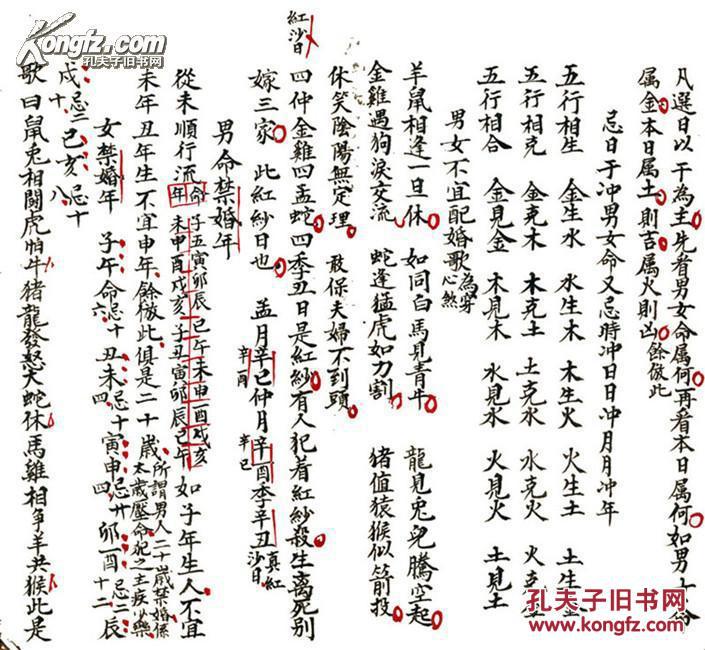 凡選日以干為主先看男女命属何再看本日属何如男女命
属金本日属土則吉属火則凶餘倣此
忌日干冲男女命又忌時冲日日冲月月冲年
五行相生 金生水 水生木 木生火 火生土 土生金
五行相克 金克木 木克土 土克水 水克火 火克金
五行相合 金見金 木見木 水見水 火見火 土見土
男女不宜配婚歌為穿心煞
羊鼠相逢一旦休 如同白馬見青牛 龍見兔兒騰空起
金雞遇狗淚交流 蛇逢猛虎如刀割 猪值猿猴似箭投
休笑陰陽無定理 敢保夫婦不到頭
紅沙日
四仲金雞四孟蛇四季丑日是紅紗有人犯着紅紗殺生離死别
嫁三家 此紅紗日也 孟月辛巳仲月辛酉季辛丑真紅沙日
辛酉 辛巳
男命禁婚年
從未順行流年 命子丑寅卯辰巳午未申酉戌亥 未申酉戌亥子丑寅卯辰巳午 如子年生人不宜
未年丑年生不宜申年餘倣此俱是二十歲所謂男人二十歲禁婚係太歲壓命犯之主疾少樂
女禁婚年 子午命忌十六 丑未忌十四 寅申忌廿四 卯酉忌十二 辰
戌忌二十 巳亥忌十八
歌曰鼠兔相鬪虎怕牛猪龍發怒犬蛇休馬雞相爭羊共猴此是
Kongfz.com
孔夫子旧书网
Kongfz.com
孔夫子旧书网
孔夫子旧书网
www.kongfz.com